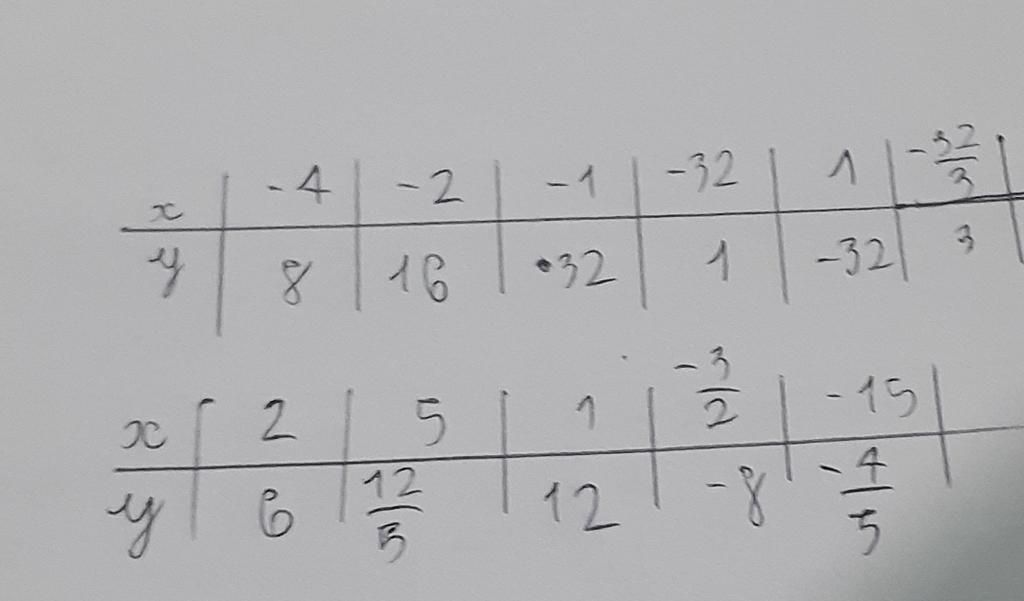 x | -4 | -2 | -1 | -32 | 1 | -32/3 |
y | 8 | 16 | •32 | 1 | -32 | 3
x | 2 | 5 | 1 | -3/2 | -15 |
y | 6 | 12/5 | 12 | -8 | -4/5